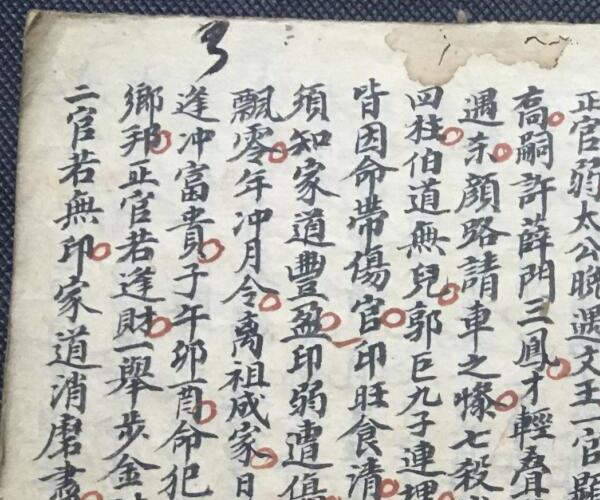 正官弱太公晚遇文王一官顯
高嗣許薛門三鳳才輕疊
遇东顔路請車之慘七殺
四柱伯道無兒郭巨九子連埋
皆因命帶傷官印旺食清
須知家道豐盈印弱遭傷
飄零年冲月令离祖成家日
逢冲富貴子午卯酉命犯
鄉邦正官若逢財一舉步金
二官若無印家道消磨